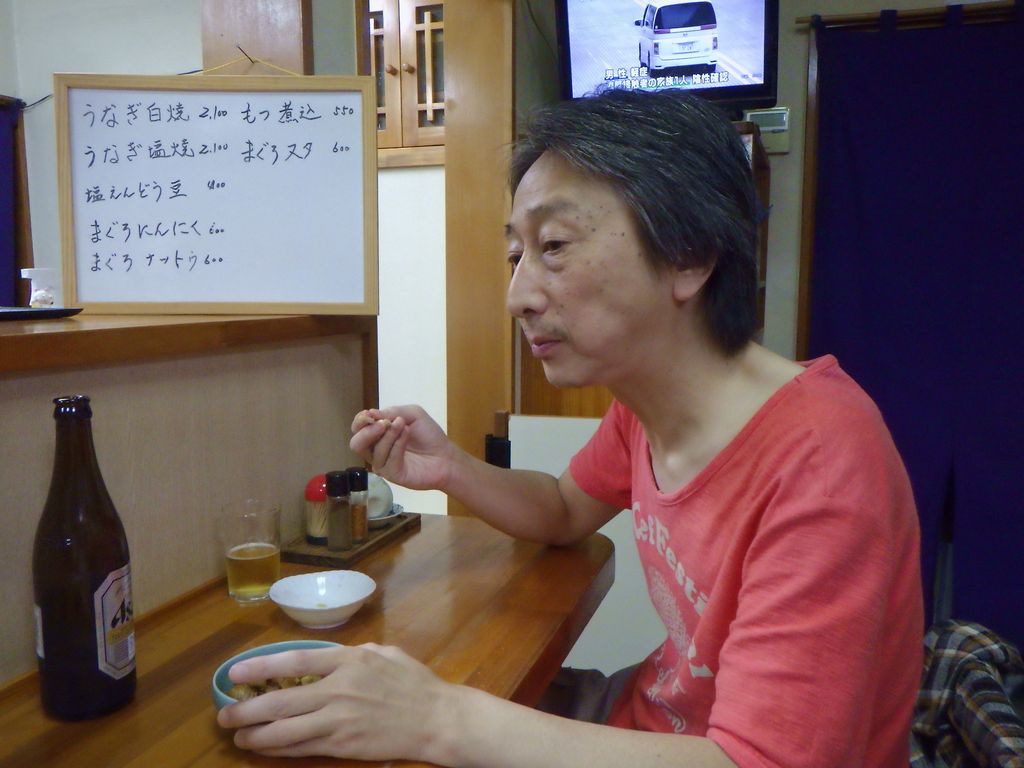 うなぎ白焼 2,100
うなぎ塩焼 2,100
塩えんどう豆 400
まぐろにんにく 600
まぐろナットウ 600
もつ煮込 550
まぐろスタ 600
男性 軽症
接触者の家族1人 陰性確認
Asa